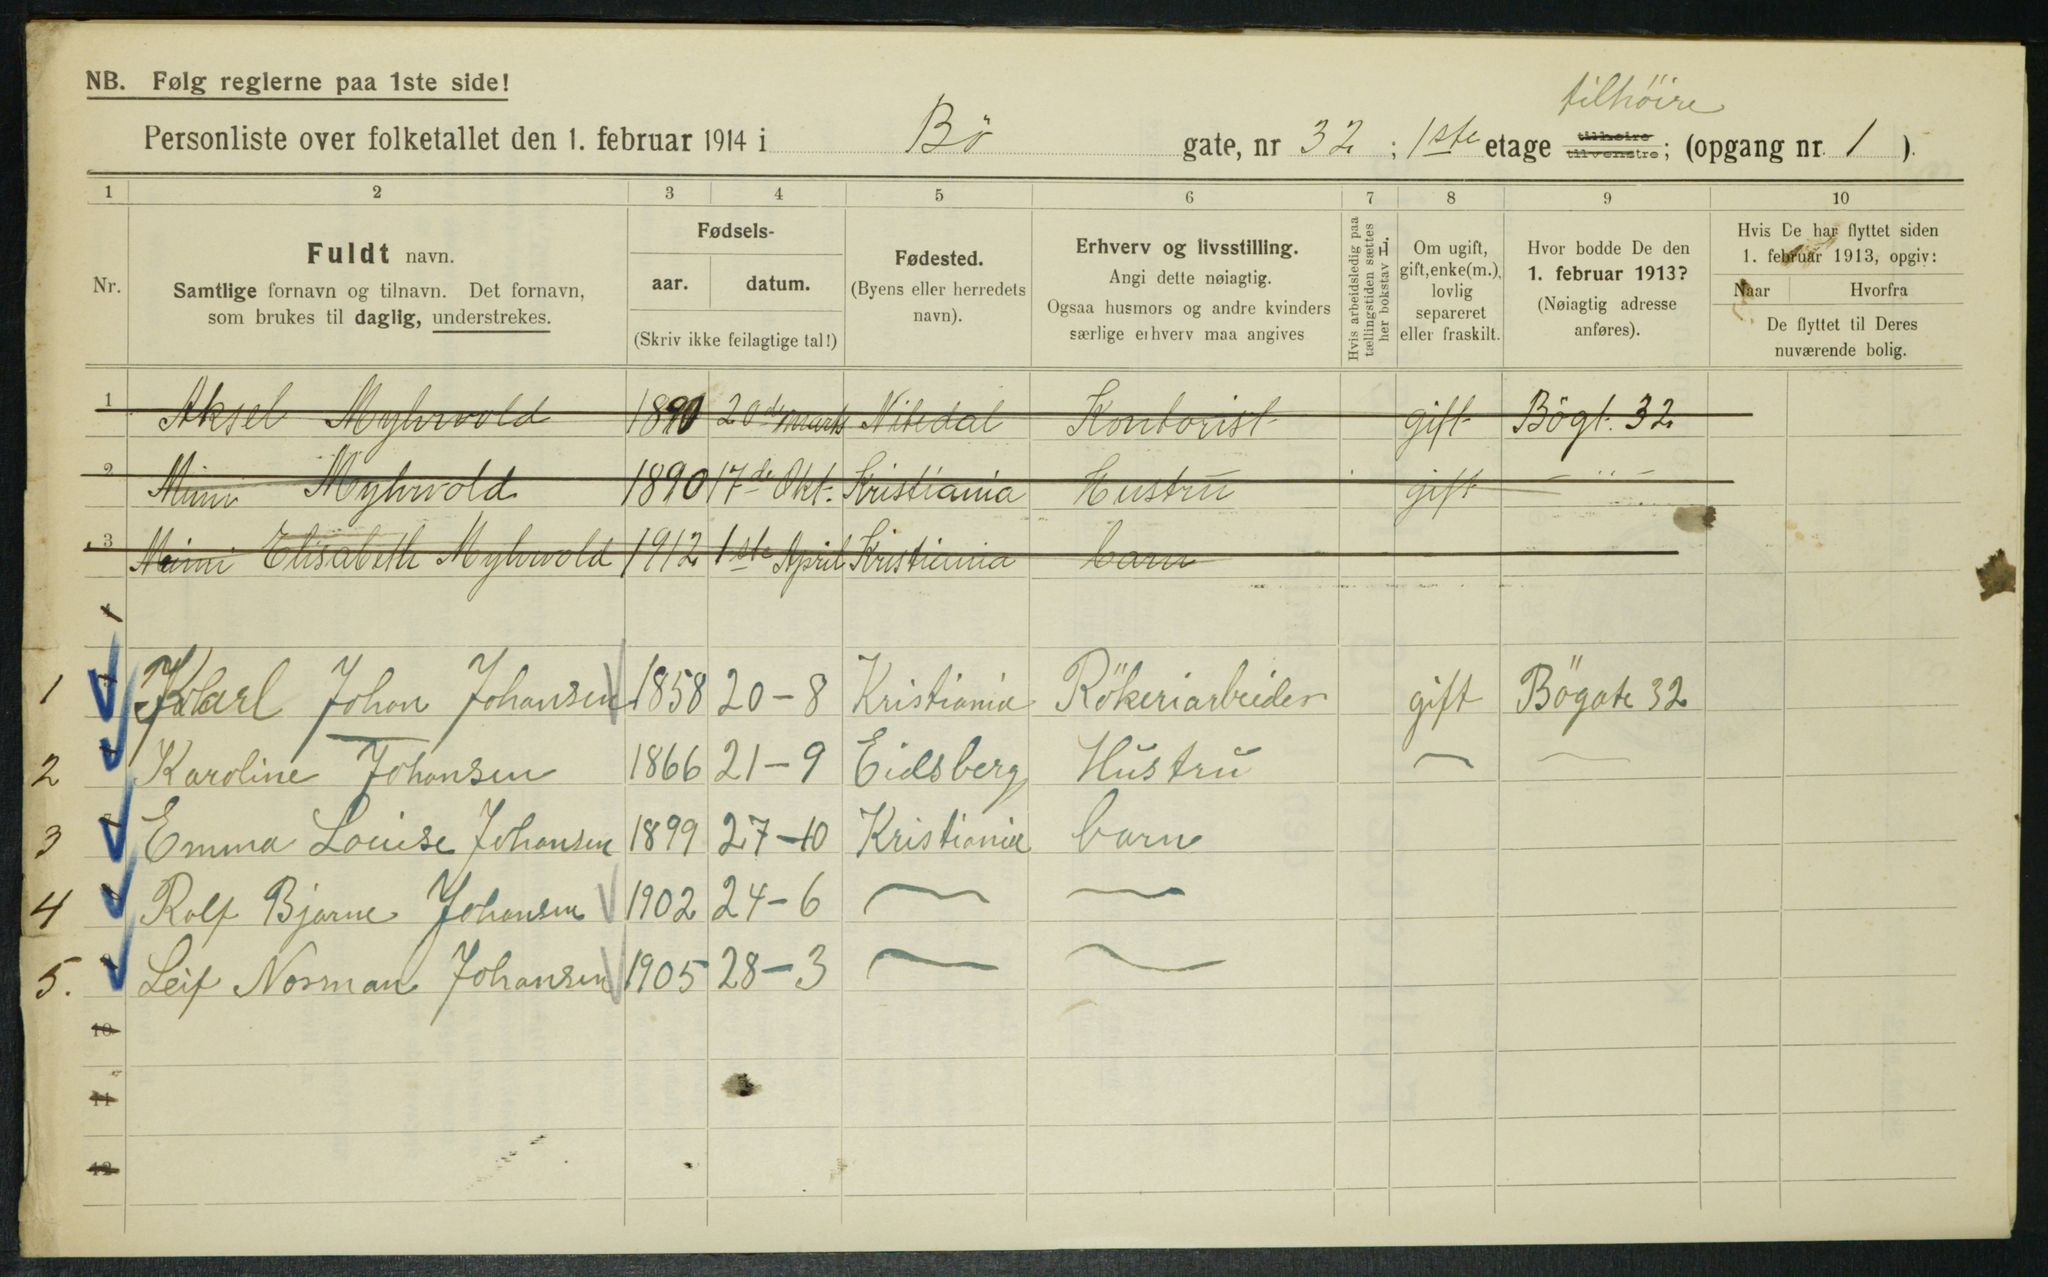 NB. Følg reglerne paa 1ste side!
tilhöire
Personliste over folketallet den 1. februar 1914 i Bö gate, nr 32 ; 1ste etage tilhøire tilvenstre ; (opgang nr. 1 ).
1 2 3 4 5 6 7 8 9 10
Nr.
Fuldt navn.
Samtlige fornavn og tilnavn. Det fornavn,
som brukes til daglig, understrekes.
Fødsels-
aar. datum.
(Skriv ikke feilagtige tal!)
Fødested.
(Byens eller herredets
navn).
Erhverv og livsstilling.
Angi dette nøiagtig.
Ogsaa husmors og andre kvinders
særlige erhverv maa angives
Hvis arbeidsledig paa
tællingstiden sættes
her bokstav L.
Om ugift,
gift, enke(m.),
lovlig
separeret
eller fraskilt.
Hvor bodde De den
1. februar 1913?
(Nøiagtig adresse
anføres).
Hvis De har flyttet siden
1. februar 1913, opgiv:
Naar Hvorfra
De flyttet til Deres
nuværende bolig.
1 Aksel Myhrvold 1890 20de marts Nitedal Kontorist gift Bögt. 32
2 Mimi Myhrvold 1890 17de Okt. Kristiania Hustru gift
3 Mimi Elisabeth Myhrvold 1912 1ste April Kristiania barn
1 Karl Johan Johansen 1858 20-8 Kristiania Rökeriarbeider gift Bögate 32
2 Karoline Johansen 1866 21-9 Eidsberg Hustru
3 Emma Louise Johansen 1899 27-10 Kristiania barn
4 Rolf Bjarne Johansen 1902 24-6
5. Leif Norman Johansen 1905 28-3
10
11
12